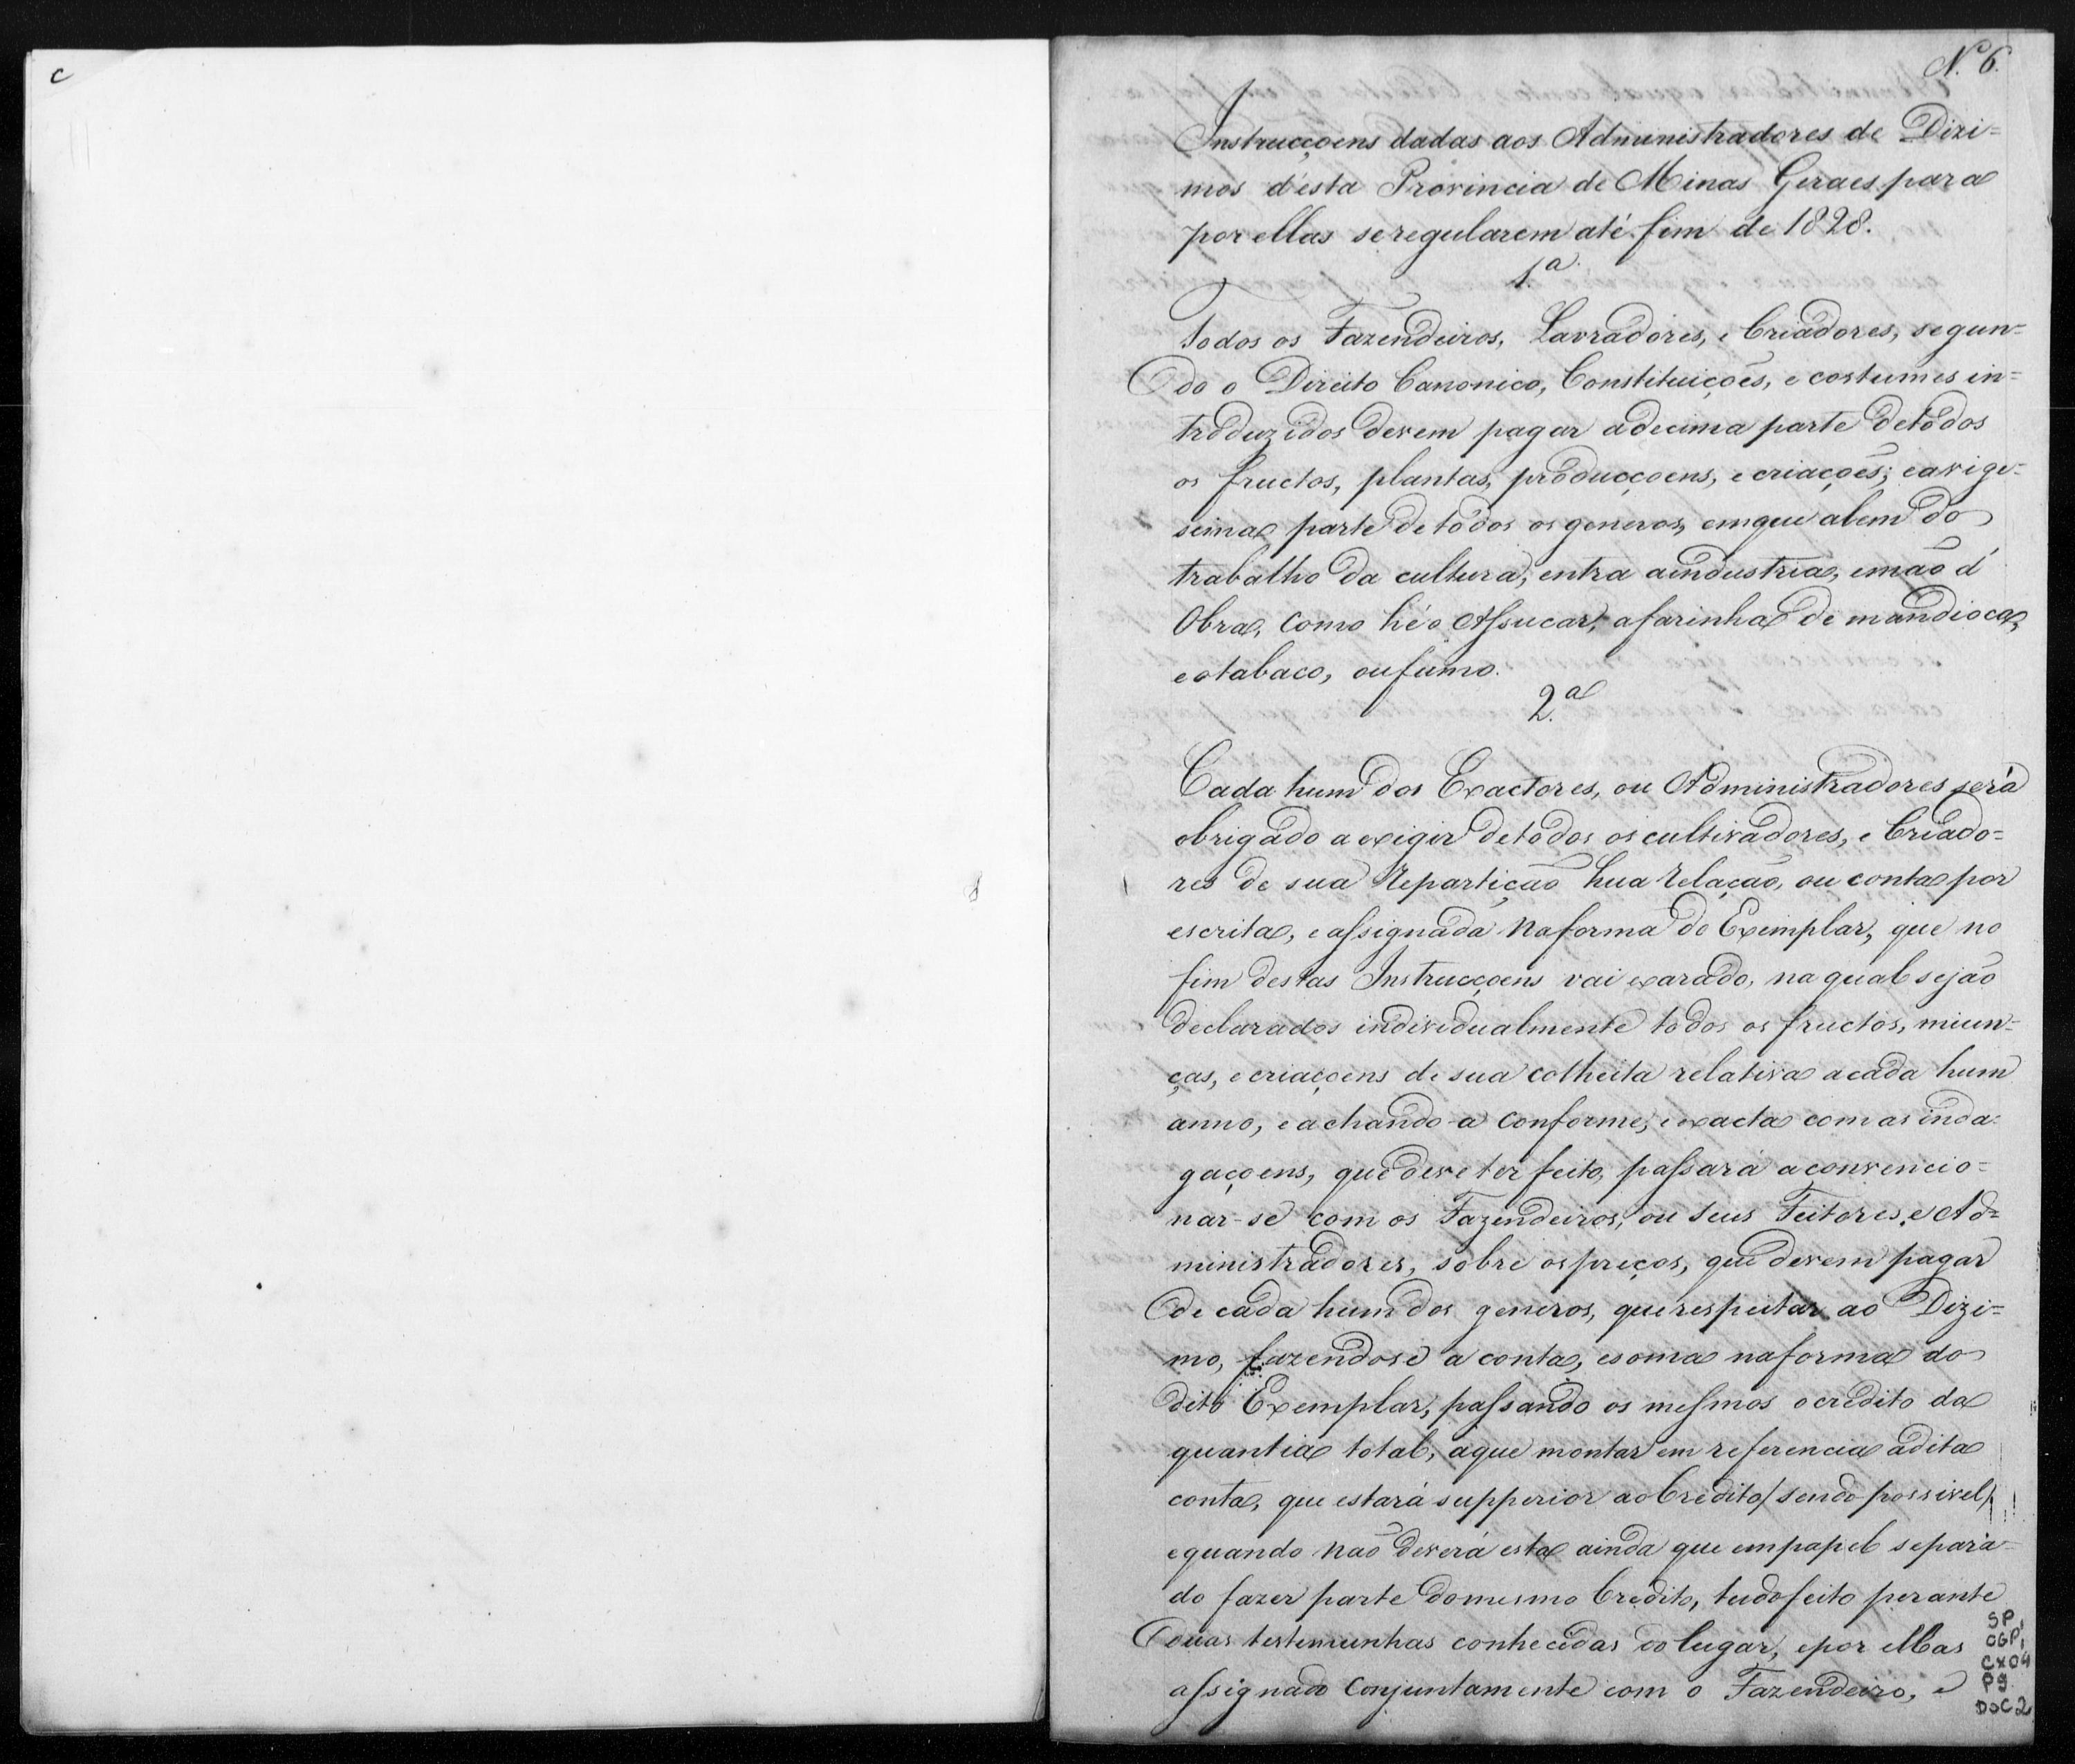 N. 6.
Instrucçoens dadas aos Administradores de Dizi=
mos d'esta Provincia de Minas Geraes para
por ellas se regularem até fim de 1828.
1.a
Todos os Fazendeiros, Lavradores, e Criadores, segun=
do o Direito Canonico, Constituiçoẽs, e costumes in=
troduzidos devem pagar a decima parte de todos
os fructos, plantas, producçoens, e criaçoẽs; e a vige=
seima parte de todos os generos, em que alem do
trabalho da cultura, entra a industria, e mão d'
Obra, como hé o Assucar, a farinha de mandioca,
e o tabaco, ou fumo.
2.a
Cada hum dos Exactores, ou Administradores será
obrigado a exigir de todos os cultivadores, e Criado=
res de sua Repartição hua relação, ou conta por
escrita, e assignada na forma do Exemplar, que no
fim destas Instrucçoens vai exarado, na qual sejão
declarados individualmente todos os fructos, miun=
ças, e criaçoens de sua colheita relativa a cada hum
anno, e achando-a conforme, e exacta com as inda=
gaçoens, que deve ter feito, passará a convencio=
nar-se com os Fazendeiros, ou seus Feitores, e Ad=
ministradores, sobre os preços, que devem pagar
de cada hum dos generos, que respeitar ao Dizi=
mo, fazendose a conta, e soma na forma do
dito Exemplar, passando os mesmos o credito da
quantia total, a que montar em referencia a dita
conta, que estará supperior ao Credito/ sendo possivel/
e quando não deverá esta ainda que em papel separa=
do fazer parte do mesmo Credito, tudo feito perante
duas testemunhas conhecidas do lugar, e por ellas
assignado conjuntamente com o Fazendeiro, e
SP
CGP1
CX04
P9
DOC2